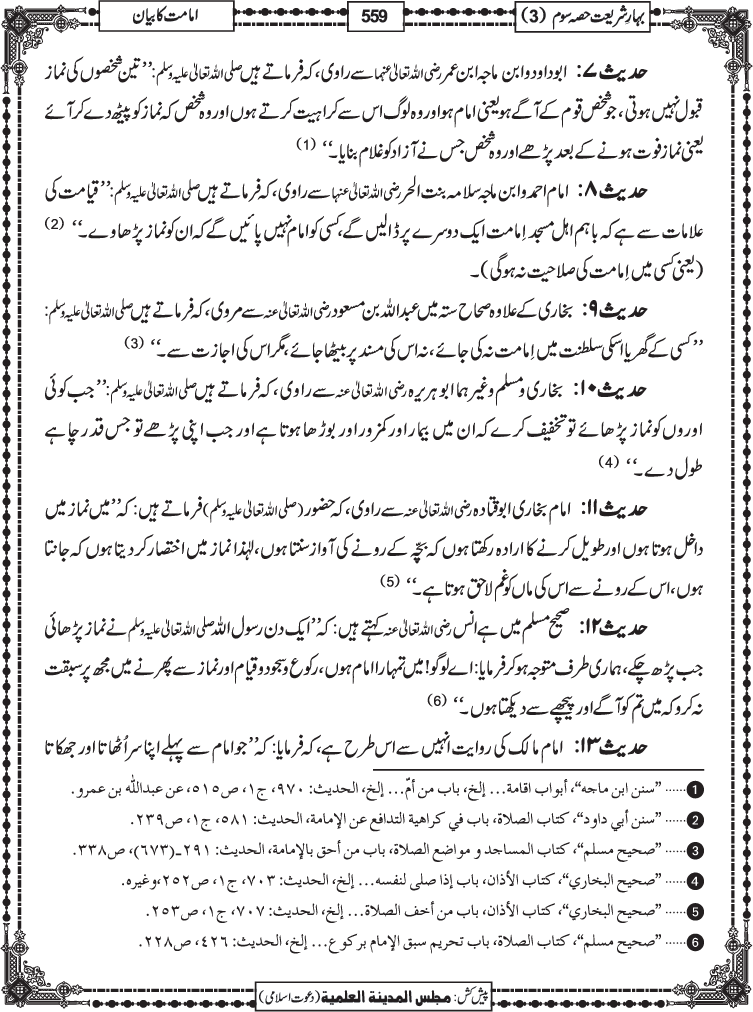 بہار شریعت حصہ سوم (3)
559
امامت کا بیان
حدیث ۷: ابو داود و ابن ماجہ ابن عمر رضی اللہ تعالیٰ عنہما سے راوی، کہ فرماتے ہیں صلی اللہ تعالیٰ علیہ وسلم: ’’تین شخصوں کی نماز
قبول نہیں ہوتی، جو شخص قوم کے آگے ہو یعنی امام ہو اور وہ لوگ اس سے کراہیت کرتے ہوں اور وہ شخص کہ نماز کو پیٹھ دے کر آئے
یعنی نماز فوت ہونے کے بعد پڑھے اور وہ شخص جس نے آزاد کو غلام بنایا۔‘‘ (1)
حدیث ۸: امام احمد و ابن ماجہ سلامہ بنت الحر رضی اللہ تعالیٰ عنہا سے راوی، کہ فرماتے ہیں صلی اللہ تعالیٰ علیہ وسلم: ’’قیامت کی
علامات سے ہے کہ باہم اہل مسجد اِمامت ایک دوسرے پر ڈالیں گے، کسی کو امام نہیں پائیں گے کہ ان کو نماز پڑھاوے۔‘‘ (2)
(یعنی کسی میں اِمامت کی صلاحیت نہ ہوگی)۔
حدیث ۹: بخاری کے علاوہ صحاح ستہ میں عبداللہ بن مسعود رضی اللہ تعالیٰ عنہ سے مروی، کہ فرماتے ہیں صلی اللہ تعالیٰ علیہ وسلم:
’’کسی کے گھر یا اسکی سلطنت میں اِمامت نہ کی جائے، نہ اس کی مسند پر بیٹھا جائے، مگر اس کی اجازت سے۔‘‘ (3)
حدیث ۱۰: بخاری و مسلم وغیرہما ابوہریرہ رضی اللہ تعالیٰ عنہ سے راوی، کہ فرماتے ہیں صلی اللہ تعالیٰ علیہ وسلم: ’’جب کوئی
اوروں کو نماز پڑھائے تو تخفیف کرے کہ ان میں بیمار اور کمزور اور بوڑھا ہوتا ہے اور جب اپنی پڑھے تو جس قدر چاہے
طول دے۔‘‘ (4)
حدیث ۱۱: امام بخاری ابوقتادہ رضی اللہ تعالیٰ عنہ سے راوی، کہ حضور (صلی اللہ تعالیٰ علیہ وسلم) فرماتے ہیں: کہ ’’میں نماز میں
داخل ہوتا ہوں اور طویل کرنے کا ارادہ رکھتا ہوں کہ بچّہ کے رونے کی آواز سنتا ہوں، لہٰذا نماز میں اختصار کر دیتا ہوں کہ جانتا
ہوں، اس کے رونے سے اس کی ماں کو غم لاحق ہوتا ہے۔‘‘ (5)
حدیث ۱۲: صحیح مسلم میں ہے انس رضی اللہ تعالیٰ عنہ کہتے ہیں: کہ ’’ایک دن رسول اللہ صلی اللہ تعالیٰ علیہ وسلم نے نماز پڑھائی
جب پڑھ چکے، ہماری طرف متوجہ ہو کر فرمایا: اے لوگو! میں تمہارا امام ہوں، رکوع و سجود و قیام اور نماز سے پھرنے میں مجھ پر سبقت
نہ کرو کہ میں تم کو آگے اور پیچھے سے دیکھتا ہوں۔‘‘ (6)
حدیث ۱۳: امام مالک کی روایت انہیں سے اس طرح ہے، کہ فرمایا: کہ ’’جو امام سے پہلے اپنا سر اُٹھاتا اور جھکاتا
1 ...... ”سنن ابن ماجه“، أبواب اقامة... إلخ، باب من أمّ... إلخ، الحديث: ٩٧٠، ج١، ص٥١٥، عن عبدالله بن عمرو.
2 ...... ”سنن أبي داود“، كتاب الصلاة، باب في كراهية التدافع عن الإمامة، الحديث: ٥٨١، ج١، ص٢٣٩.
3 ...... ”صحيح مسلم“، كتاب المساجد و مواضع الصلاة، باب من أحق بالإمامة، الحديث: ٢٩١ـ(٦٧٣)، ص٣٣٨.
4 ...... ”صحيح البخاري“، كتاب الأذان، باب إذا صلى لنفسه... إلخ، الحديث: ٧٠٣، ج١، ص٢٥٢، وغيره.
5 ...... ”صحيح البخاري“، كتاب الأذان، باب من أخف الصلاة... إلخ، الحديث: ٧٠٧، ج١، ص٢٥٣.
6 ...... ”صحيح مسلم“، كتاب الصلاة، باب تحريم سبق الإمام بركوع... إلخ، الحديث: ٤٢٦، ص٢٢٨.
پیش کش: مجلس المدينة العلمية (دعوت اسلامی)